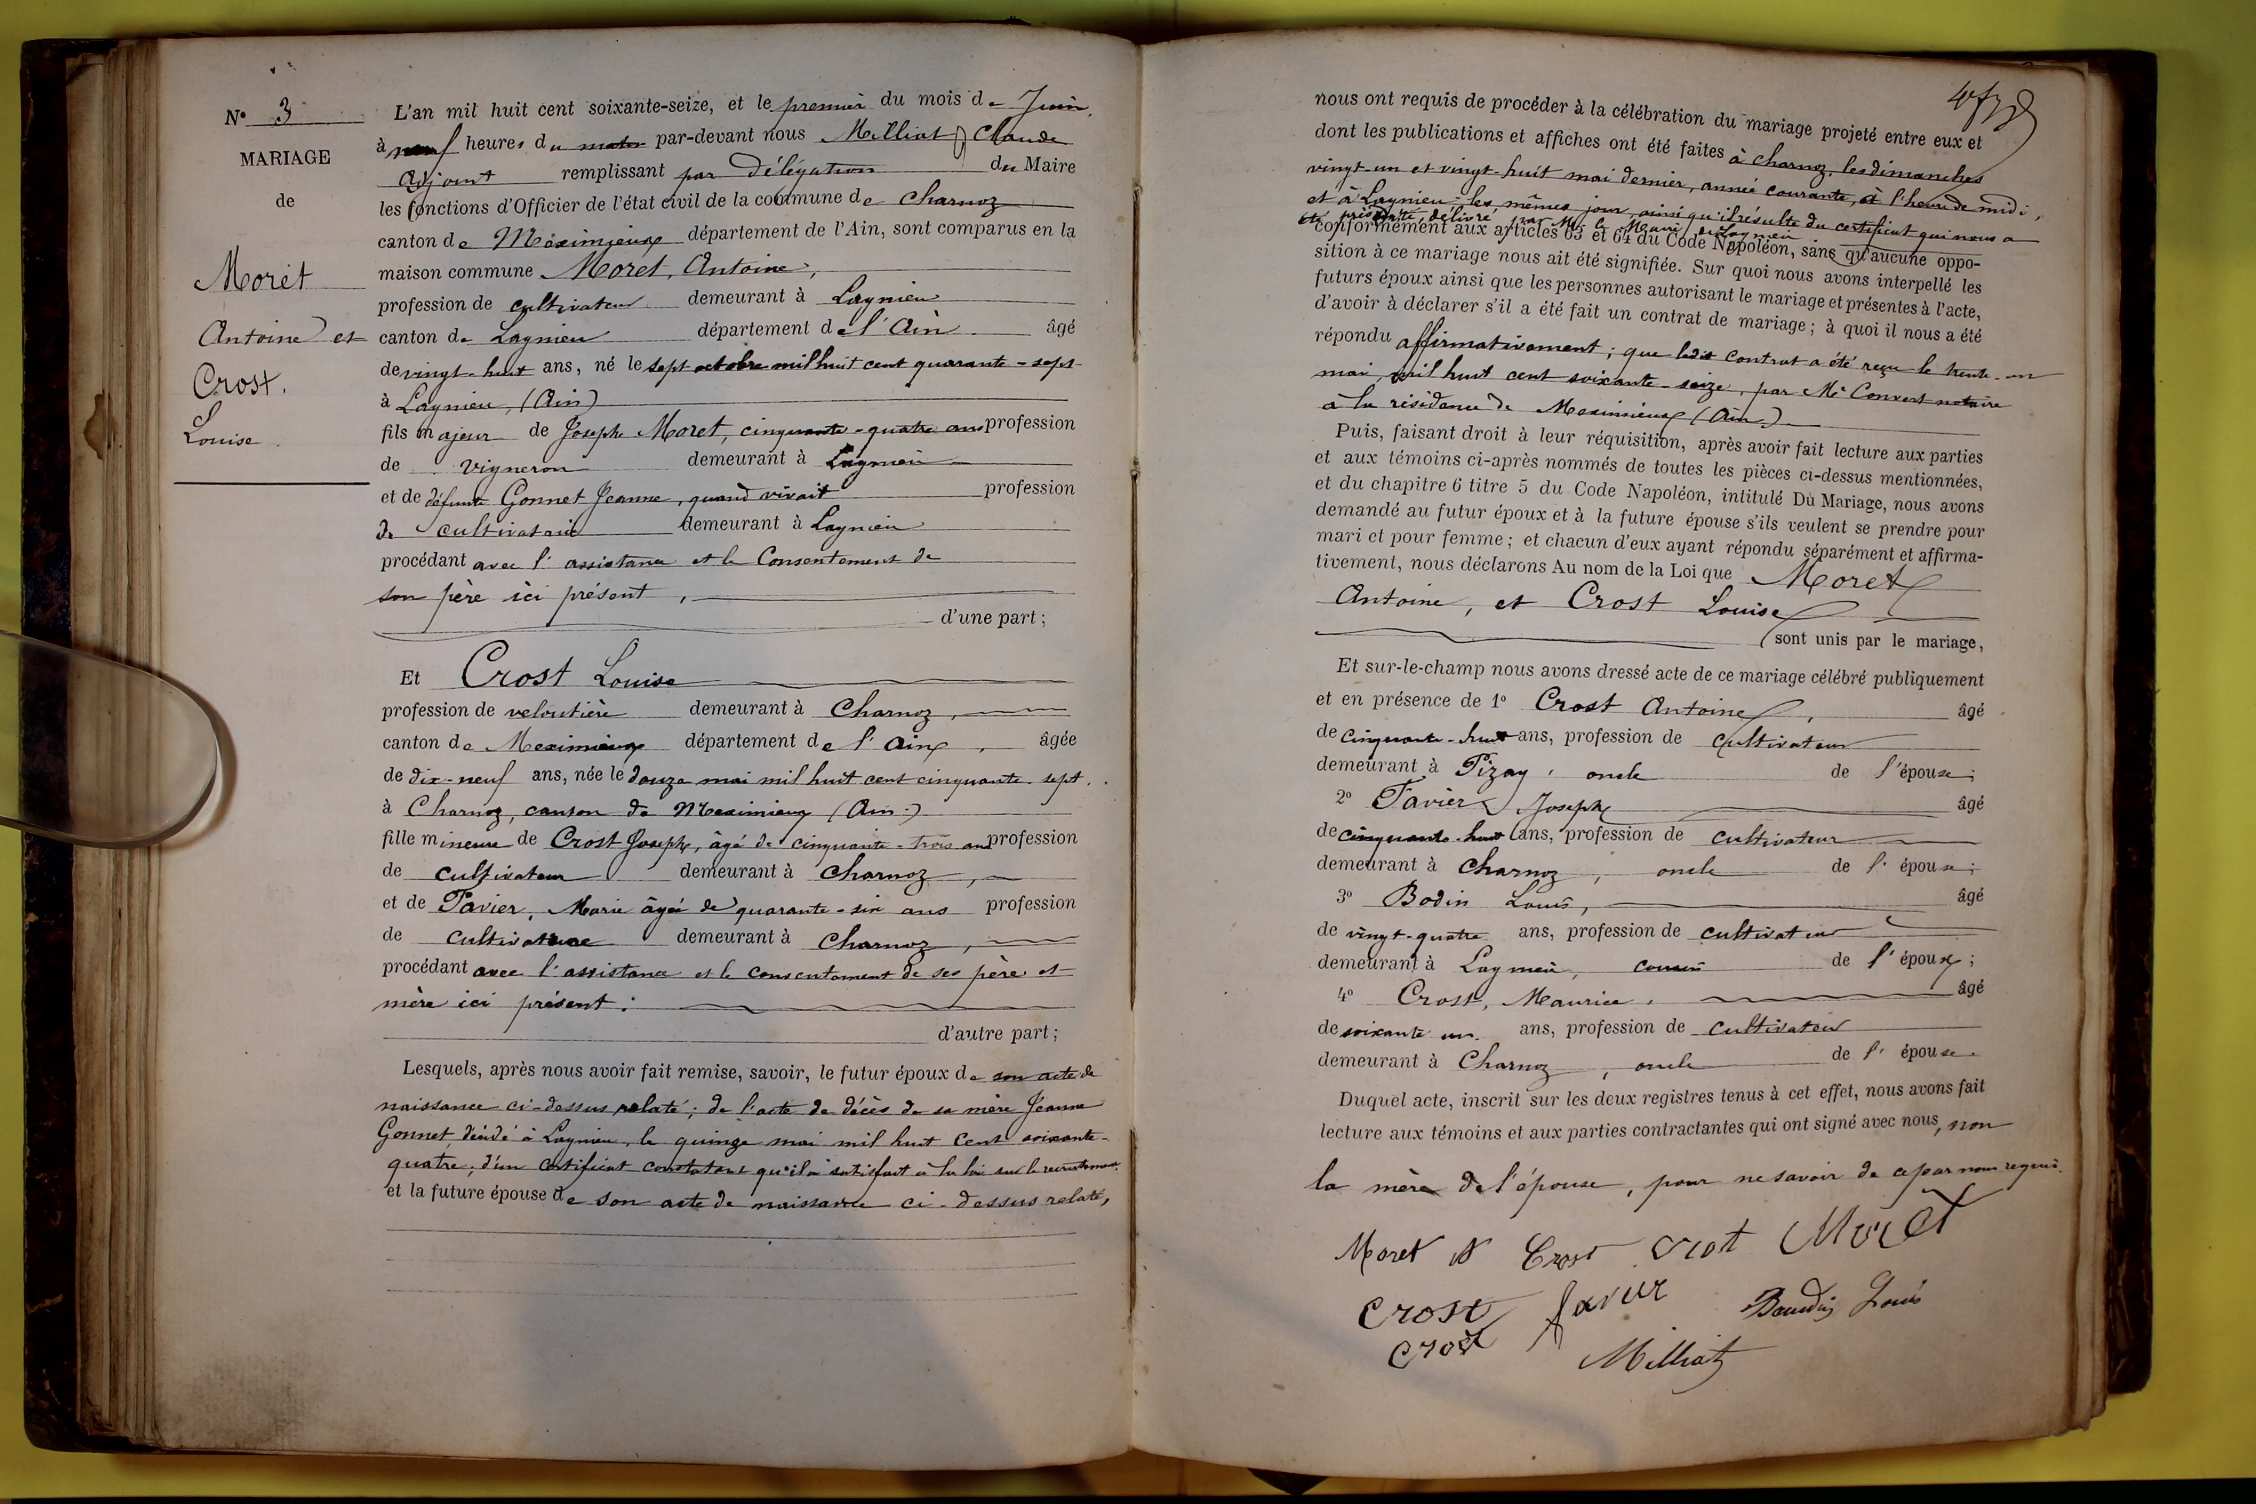 N° 3
MARIAGE
de
Moret
Antoine et
Crost.
Louise.
L'an mil huit cent soixante-seize, et le premier du mois de Juin,
à neuf heures du matin par-devant nous Milliat, Claude
Adjoint remplissant par Délégation du Maire
les fonctions d'Officier de l'état civil de la commune de Charnoz
canton de Méximieux département de l'Ain, sont comparus en la
maison commune Moret, Antoine,
profession de cultivateur demeurant à Lagnieu
canton de Lagnieu département de l'Ain âgé
de vingt-huit ans, né le sept octobre mil huit cent quarante-sept
à Lagnieu, (Ain)
fils majeur de Joseph Moret, cinquante-quatre ans profession
de vigneron demeurant à Lagnieu
et de défunte Gonnet Jeanne, quand vivait profession
de cultivatrice demeurant à Lagnieu
procédant avec l'assistance et le Consentement de
son père ici présent,
d'une part;
Et Crost Louise
profession de veloutière demeurant à Charnoz,
canton de Meximieux département de l'Ain, âgée
de dix-neuf ans, née le douze mai mil huit cent cinquante-sept.
à Charnoz, canton de Meximieux (Ain)
fille mineure de Crost Joseph, âgé de cinquante-trois ans profession
de cultivateur demeurant à Charnoz,
et de Favier, Marie âgée de quarante-six ans profession
de cultivatrice demeurant à Charnoz,
procédant avec l'assistance et le consentement de ses père et
mère ici présent.
d'autre part;
Lesquels, après nous avoir fait remise, savoir, le futur époux de son acte de
naissance ci-dessus relaté; de l'acte de décès de sa mère Jeanne
Gonnet, décédé à Lagnieu, le quinze mai mil huit cent soixante-
quatre; d'un certificat constatant qu'il a satisfait à la loi sur le recrutement.
et la future épouse de son acte de naissance ci-dessus relaté,
nous ont requis de procéder à la célébration du mariage projeté entre eux et
dont les publications et affiches ont été faites à Charnoz, les dimanches
vingt-un et vingt-huit mai dernier, année courante, à l'heure de midi,
et à Lagnieu les mêmes jour, ainsi qu'il résulte du certificat qui nous a
été présenté, délivré par Mr le Maire de Lagnieu
conformément aux articles 63 et 64 du Code Napoléon, sans qu'aucune oppo-
sition à ce mariage nous ait été signifiée. Sur quoi nous avons interpellé les
futurs époux ainsi que les personnes autorisant le mariage et présentes à l'acte,
d'avoir à déclarer s'il a été fait un contrat de mariage; à quoi il nous a été
répondu affirmativement; que ledit contrat a été reçu le trente-un
mai, mil huit cent soixante-seize, par Me Convert notaire
à la résidence de Meximieux (Ain)
Puis, faisant droit à leur réquisition, après avoir fait lecture aux parties
et aux témoins ci-après nommés de toutes les pièces ci-dessus mentionnées,
et du chapitre 6 titre 5 du Code Napoléon, intitulé Du Mariage, nous avons
demandé au futur époux et à la future épouse s'ils veulent se prendre pour
mari et pour femme; et chacun d'eux ayant répondu séparément et affirma-
tivement, nous déclarons Au nom de la Loi que Moret
Antoine, et Crost Louise
sont unis par le mariage,
Et sur-le-champ nous avons dressé acte de ce mariage célébré publiquement
et en présence de 1° Crost Antoine, âgé
de cinquante-huit ans, profession de cultivateur
demeurant à Pizay, oncle de l'épouse;
2° Favier Joseph âgé
de cinquante-huit ans, profession de cultivateur
demeurant à Charnoz, oncle de l'épouse;
3° Bodin Louis, âgé
de vingt-quatre ans, profession de cultivateur
demeurant à Lagnieu, cousin de l'époux;
4° Crost, Maurice, âgé
de soixante un ans, profession de cultivateur
demeurant à Charnoz, oncle de l'épouse.
Duquel acte, inscrit sur les deux registres tenus à cet effet, nous avons fait
lecture aux témoins et aux parties contractantes qui ont signé avec nous, non
la mère de l'épouse, pour ne savoir de ce par nous requis.
Moret A Crost Crot Moret
Crost favier Baudin Louis
Crost Milliat